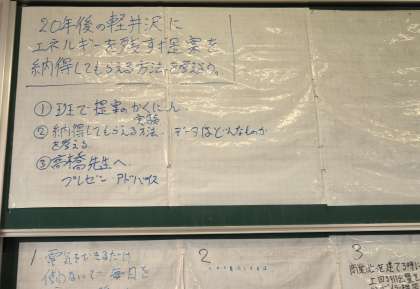 20年後の軽井沢に
エネルギーを残す提案を
納得してもらえる方法を考えよう。
①班で提案のかくにん
実験
②納得してもらえる方法、データはどんなものか
を考える
③高橋先生へ
プレゼン アドバイス
1 電気をできるだけ
使わないで 毎日を
2
3